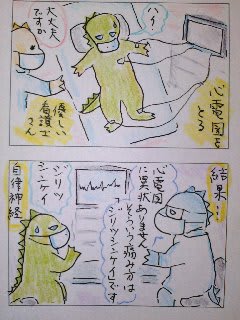 心電図を
とる
ハイ
大丈夫
ですか
優しい
看護士
さん
結果…
心電図
に異状ありません
そういう痛み方は
「ジリツシンケイ」です
ジリツ
シンケイ
自律神経